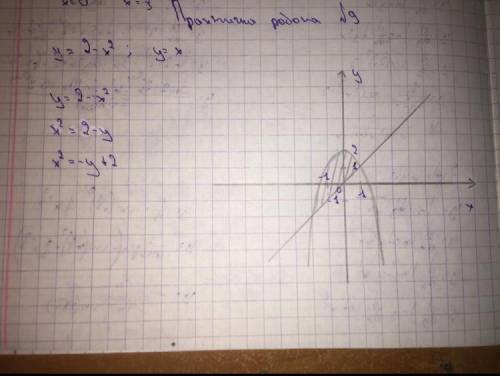 x=0 x=y
Практична робота №9
y = 2-x² ; y= x
y= 2-x²
x² = 2-y
x² = -y+2
y
2
1
-1
0
-1
1
x